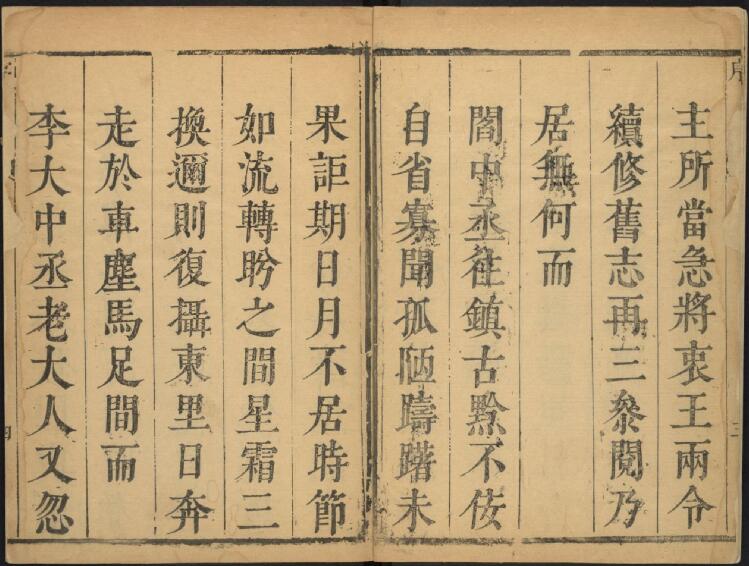 主所當急將衷王兩令
續修舊志再三叅閱乃
居無何而
閻中丞徃鎮古黔不佞
自省寡聞孤陋躊躇未
果詎期日月不居時節
如流轉盻之間星霜三
換邇則復攝東里日奔
走於車塵馬足間而
李大中丞老大人又忽